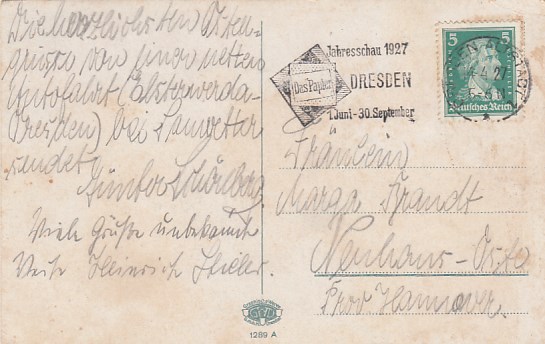 Die herzlichsten Oster-
grüsse von einer netten
Autofahrt (Elsterwerda-
Dresden) bei
sendet
Günter Schönberg
Viele Grüße unbekannter
Weise Heinrich Stiller.
Jahresschau 1927
Das Papier
DRESDEN
1. Juni - 30. September
5 5
Deutsches Reich
Fräulein
Marga Brandt
Neuhaus - Oste
Prov Hannover.
1289 A